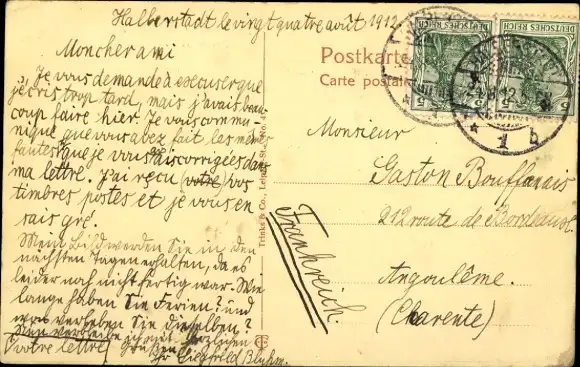 Halberstadt le vingt quatre août 1912
Mon cher ami
Je vous demande à excuser que
je cris trop tard, mais j'avais beau-
coup faire hier. Je vous commu-
nique que vous avez fait les mêmes
fautes que je vous ais corrigées dans
ma lettre. J'ai reçu (votre) vos
timbres postes et je vous en
sais gré.
Mein Bild werden Sie in den
nächsten Tagen erhalten, da es
leider noch nicht fertig war. Wie
lange haben Sie Ferien? und
verleben Sie dieselben?
Grüßen
Ihr Siegfried Bluhm.
votre lettre
Trinks & Co., Leipzig
Postkarte
Carte postale
DEUTSCHES REICH
5
5
DEUTSCHES REICH
5
5
24.8.12
1 b
Monsieur
Gaston Bouffanais
212 route de Bordeaux
Angoulême.
(Charente)
Frankreich.